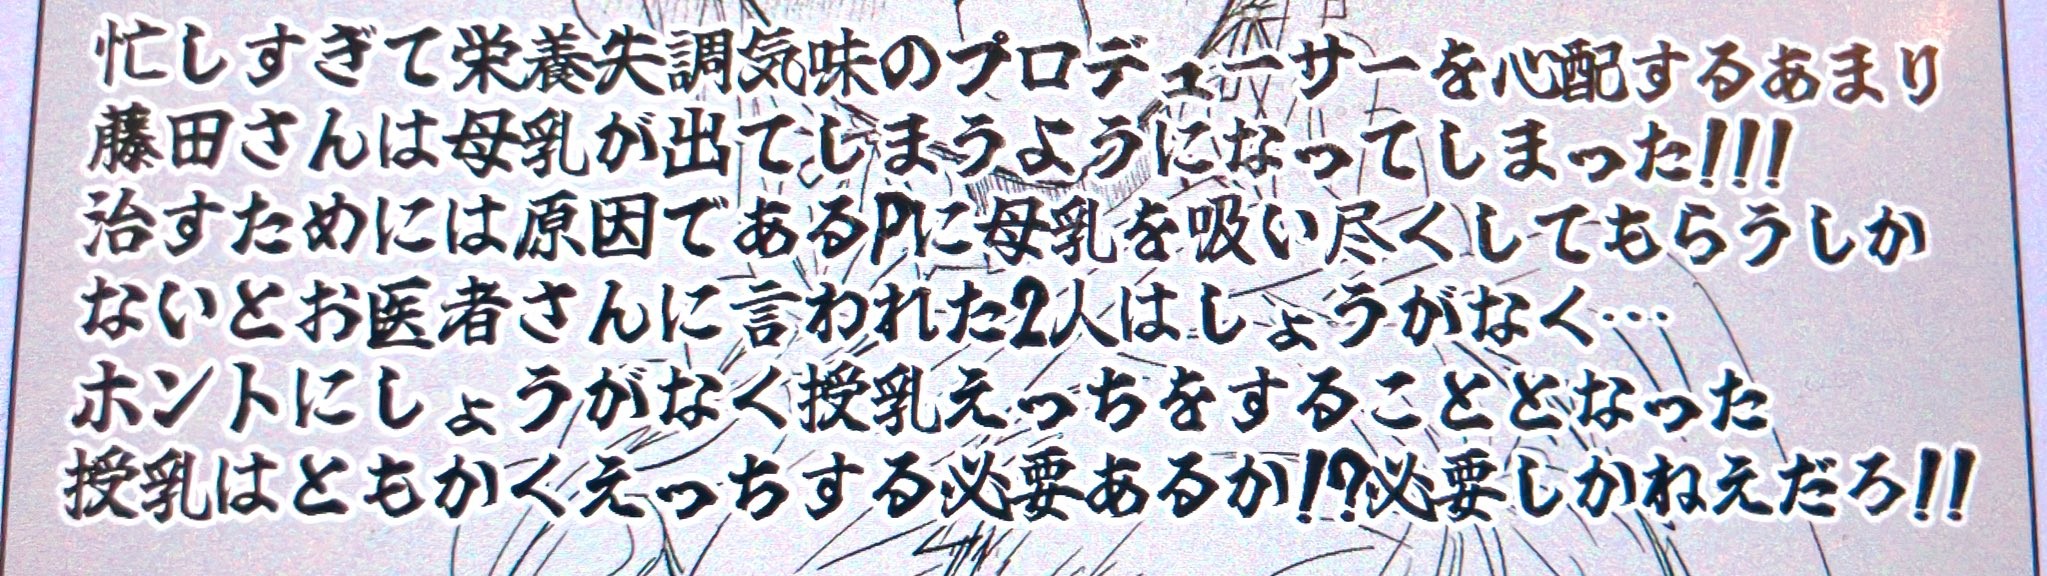 忙しすぎて栄養失調気味のプロデューサーを心配するあまり
藤田さんは母乳が出てしまうようになってしまった!!!
治すためには原因であるPに母乳を吸い尽くしてもらうしか
ないとお医者さんに言われた2人はしょうがなく…
ホントにしょうがなく授乳えっちをすることとなった
授乳はともかくえっちする必要あるか!?必要しかねえだろ!!